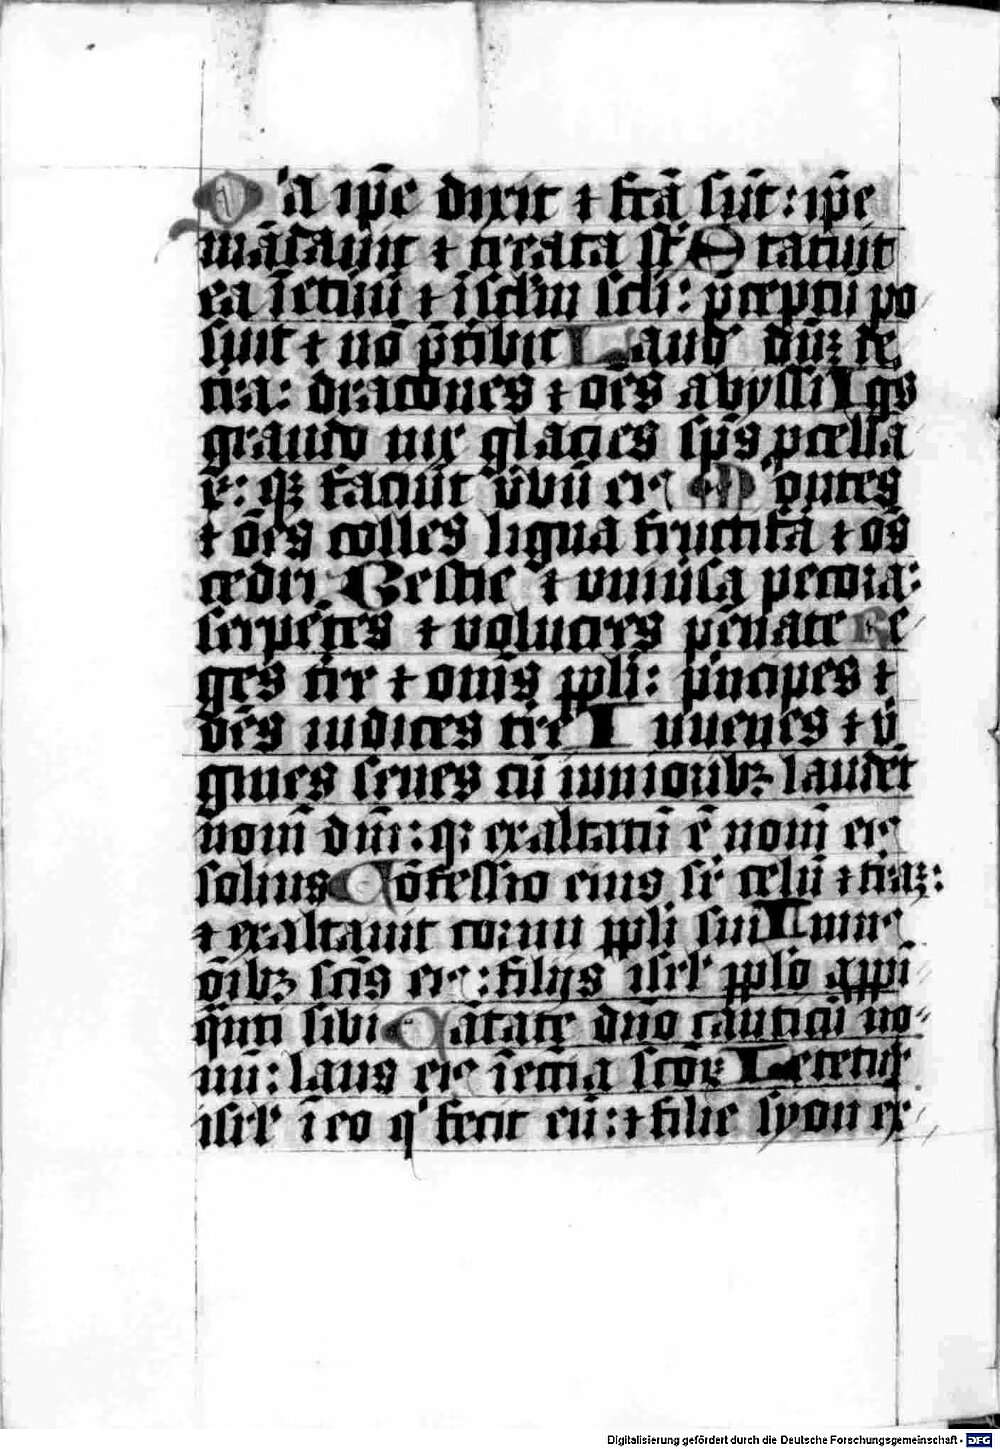 Q'a ip̄e dixit ⁊ fc̄ā sūt: ip̄e
mādauit ⁊ c̄reata st̄ Statuit
ea ī et̄nū ⁊ ī sc̄lm̄ scl̄i: p̄ceptū po
suit ⁊ nō p̄t̄ibit Laud' dn̄ꝫ de
t̄ra: dracones ⁊ oēs abyssi Igs
grando nix glacies sp̄s ꝓcella
ꝝ: qꝫ faciūt v̄bū eiꝰ Montes
⁊ ōēs colles ligna fructifā ⁊ oēs
cedri Bestie ⁊ vniūsa pecora:
serpētes ⁊ volucres pēnate Re
ges t̄re ⁊ om̄s ppl̄i: p̄ncipes ⁊
oēs iudices t̄re Iuuenes ⁊ v̄
gines senes cū iunioribꝫ laudēt
nom̄ dn̄i: qꝛ exaltatū ē nom̄ eiꝰ
solius Cōfessio eius sr̄ celū ⁊ t̄raꝫ:
⁊ exaltauit cornu ppl̄i sui Imnꝰ
oībꝫ sc̄is eiꝰ: filijs isrl' ppl̄o appi
q̄nti sibi Cātate dn̄o cāticū no-
uū: laus eiꝰ ī ecc̄ia sc̄oꝝ Letetur
isrl' ī eo q' fecit eū: ⁊ filie syon ex
Digitalisierung gefördert durch die Deutsche Forschungsgemeinschaft - DFG